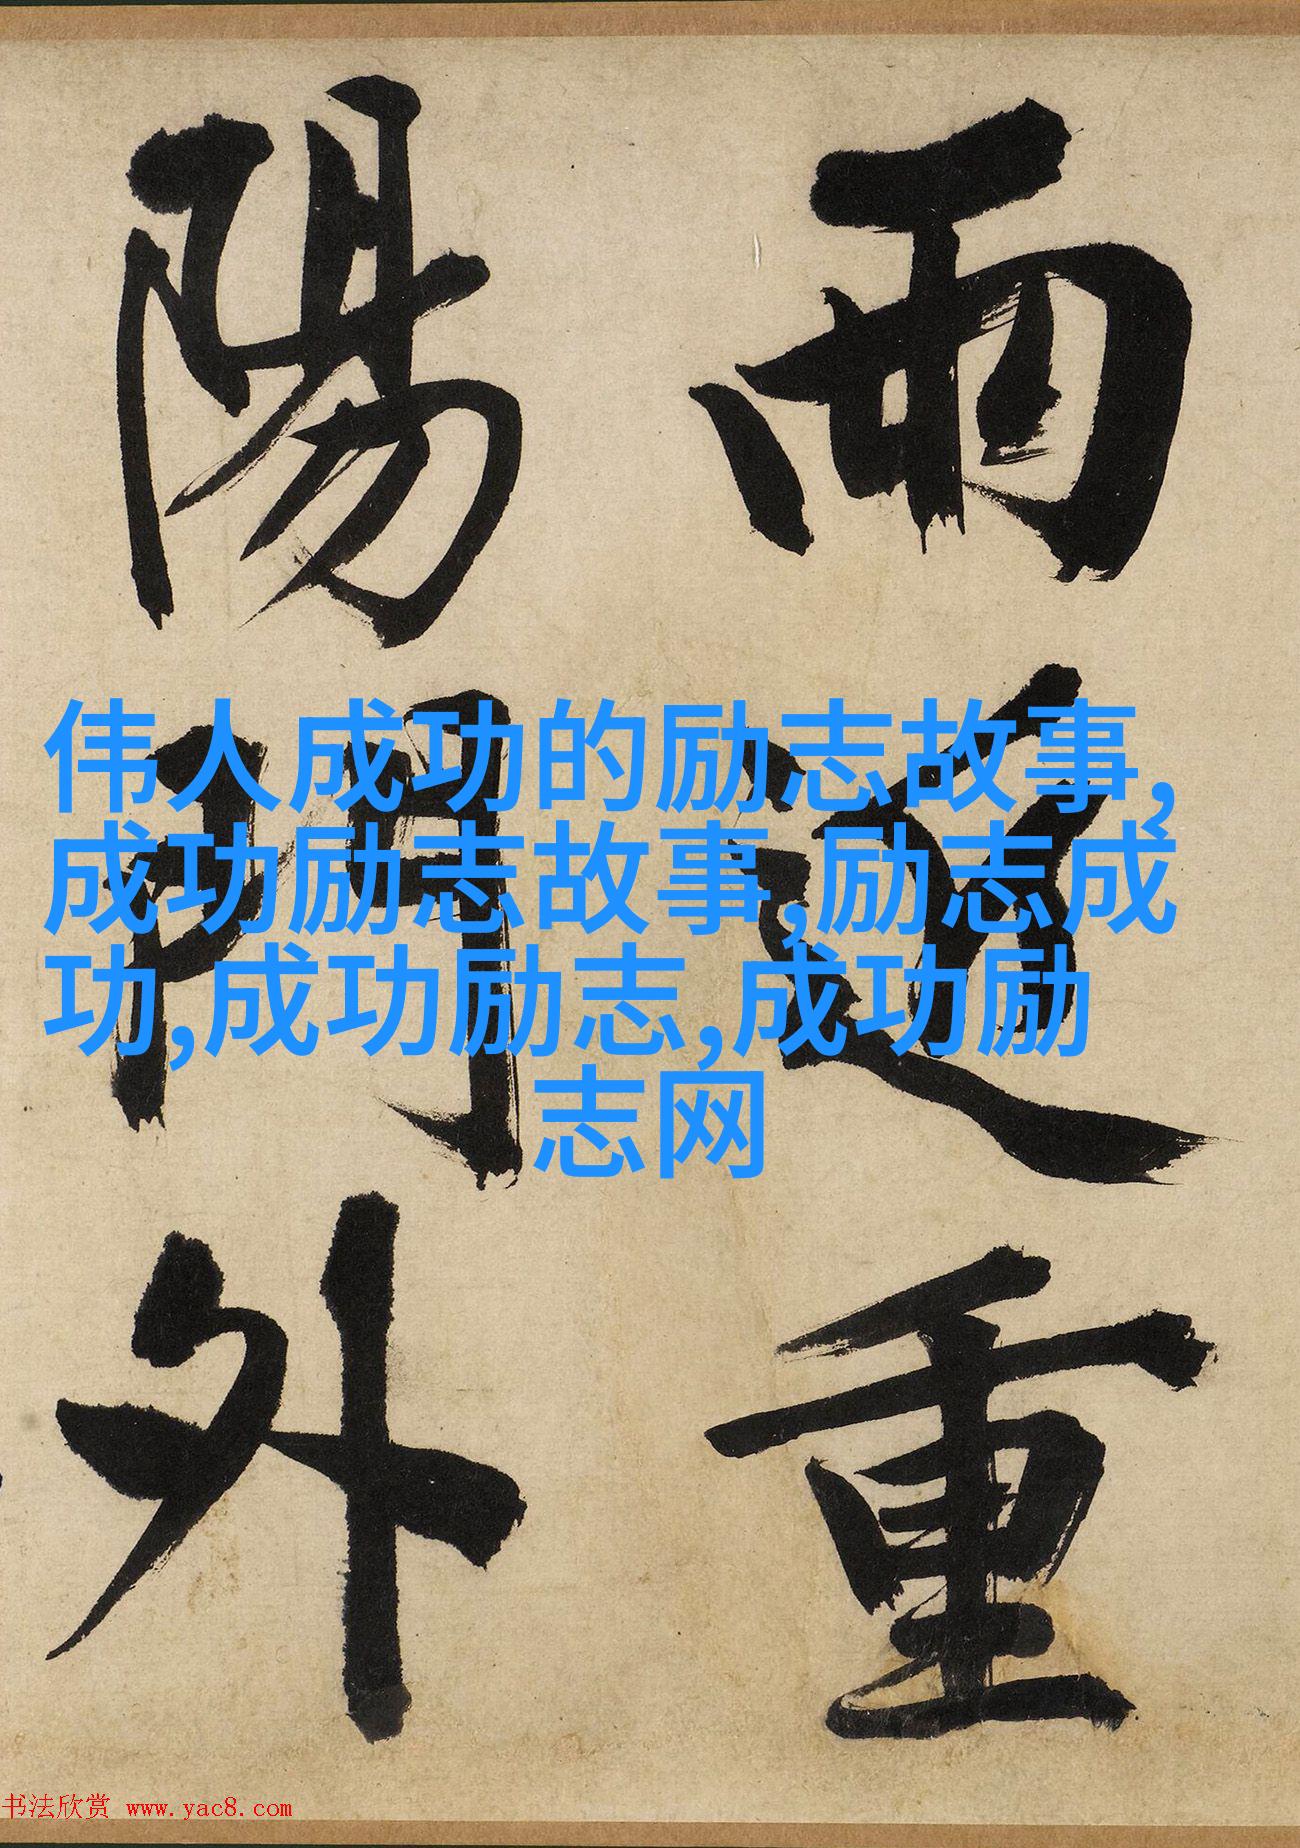 雨过重
陽門外
伟人成功的励志故事,
成功励志故事,励志成
功,成功励志,成功励
志网
书法欣赏 www.yac8.com